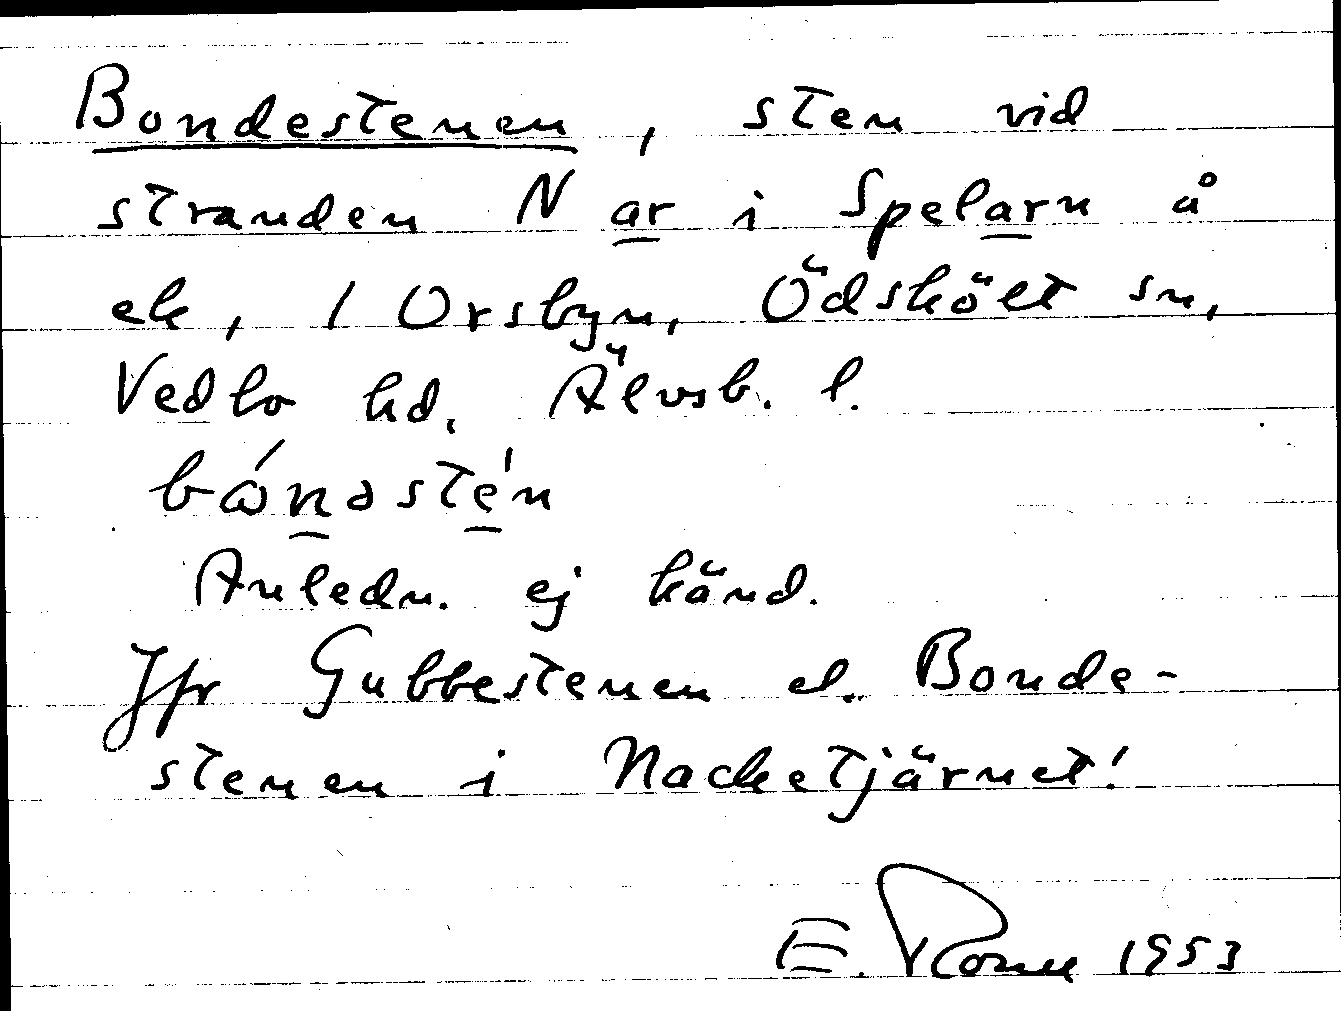 Bondestenen, sten vid
stranden N ar i Spelarn å
ek, 1 Orsbyn, Ödskölt sn,
Vedbo hd. Älvsb. l.
bɷ́nəsté̱n
Anledn. ej känd.
Jfr Gubbestenen el. Bonde-
stenen i Nacketjärnet!
E. 1953